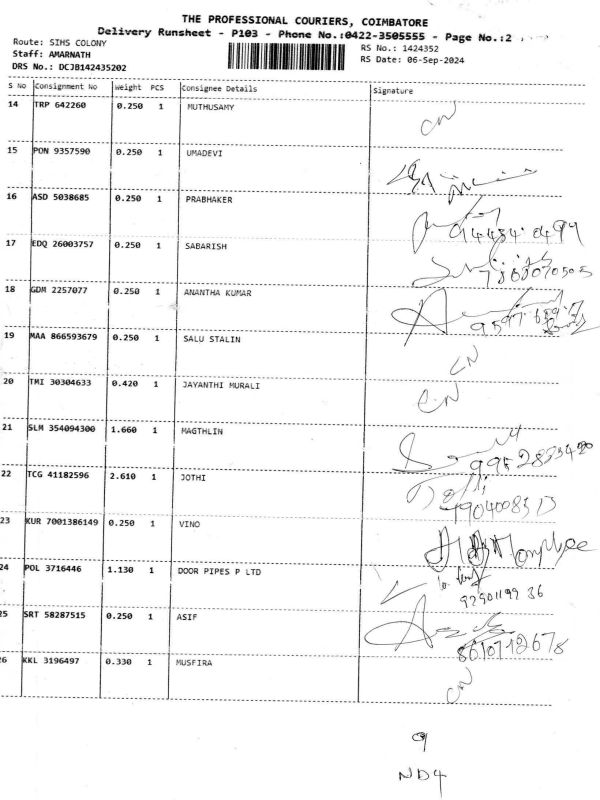 THE PROFESSIONAL COURIERS, COIMBATORE
Delivery Runsheet - P103 - Phone No.:0422-3505555 - Page No.:2
Route: SIHS COLONY
RS No.: 1424352
Staff: AMARNATH
RS Date: 06-Sep-2024
DRS No.: DCJB142435202
S No Consignment No Weight PCS Consignee Details Signature
14 TRP 642260 0.250 1 MUTHUSAMY CN
15 PON 9357590 0.250 1 UMADEVI
16 ASD 5038685 0.250 1 PRABHAKER
17 EDQ 26003757 0.250 1 SABARISH
18 GDM 2257077 0.250 1 ANANTHA KUMAR
19 MAA 866593679 0.250 1 SALU STALIN CN
20 TMI 30304633 0.420 1 JAYANTHI MURALI CN
21 SLM 354094300 1.660 1 MAGTHLIN
22 TCG 41182596 2.610 1 JOTHI
23 KUR 7001386149 0.250 1 VINO
24 POL 3716446 1.130 1 DOOR PIPES P LTD
25 SRT 58287515 0.250 1 ASIF
8610712678
26 KKL 3196497 0.330 1 MUSFIRA CN
9
ND4